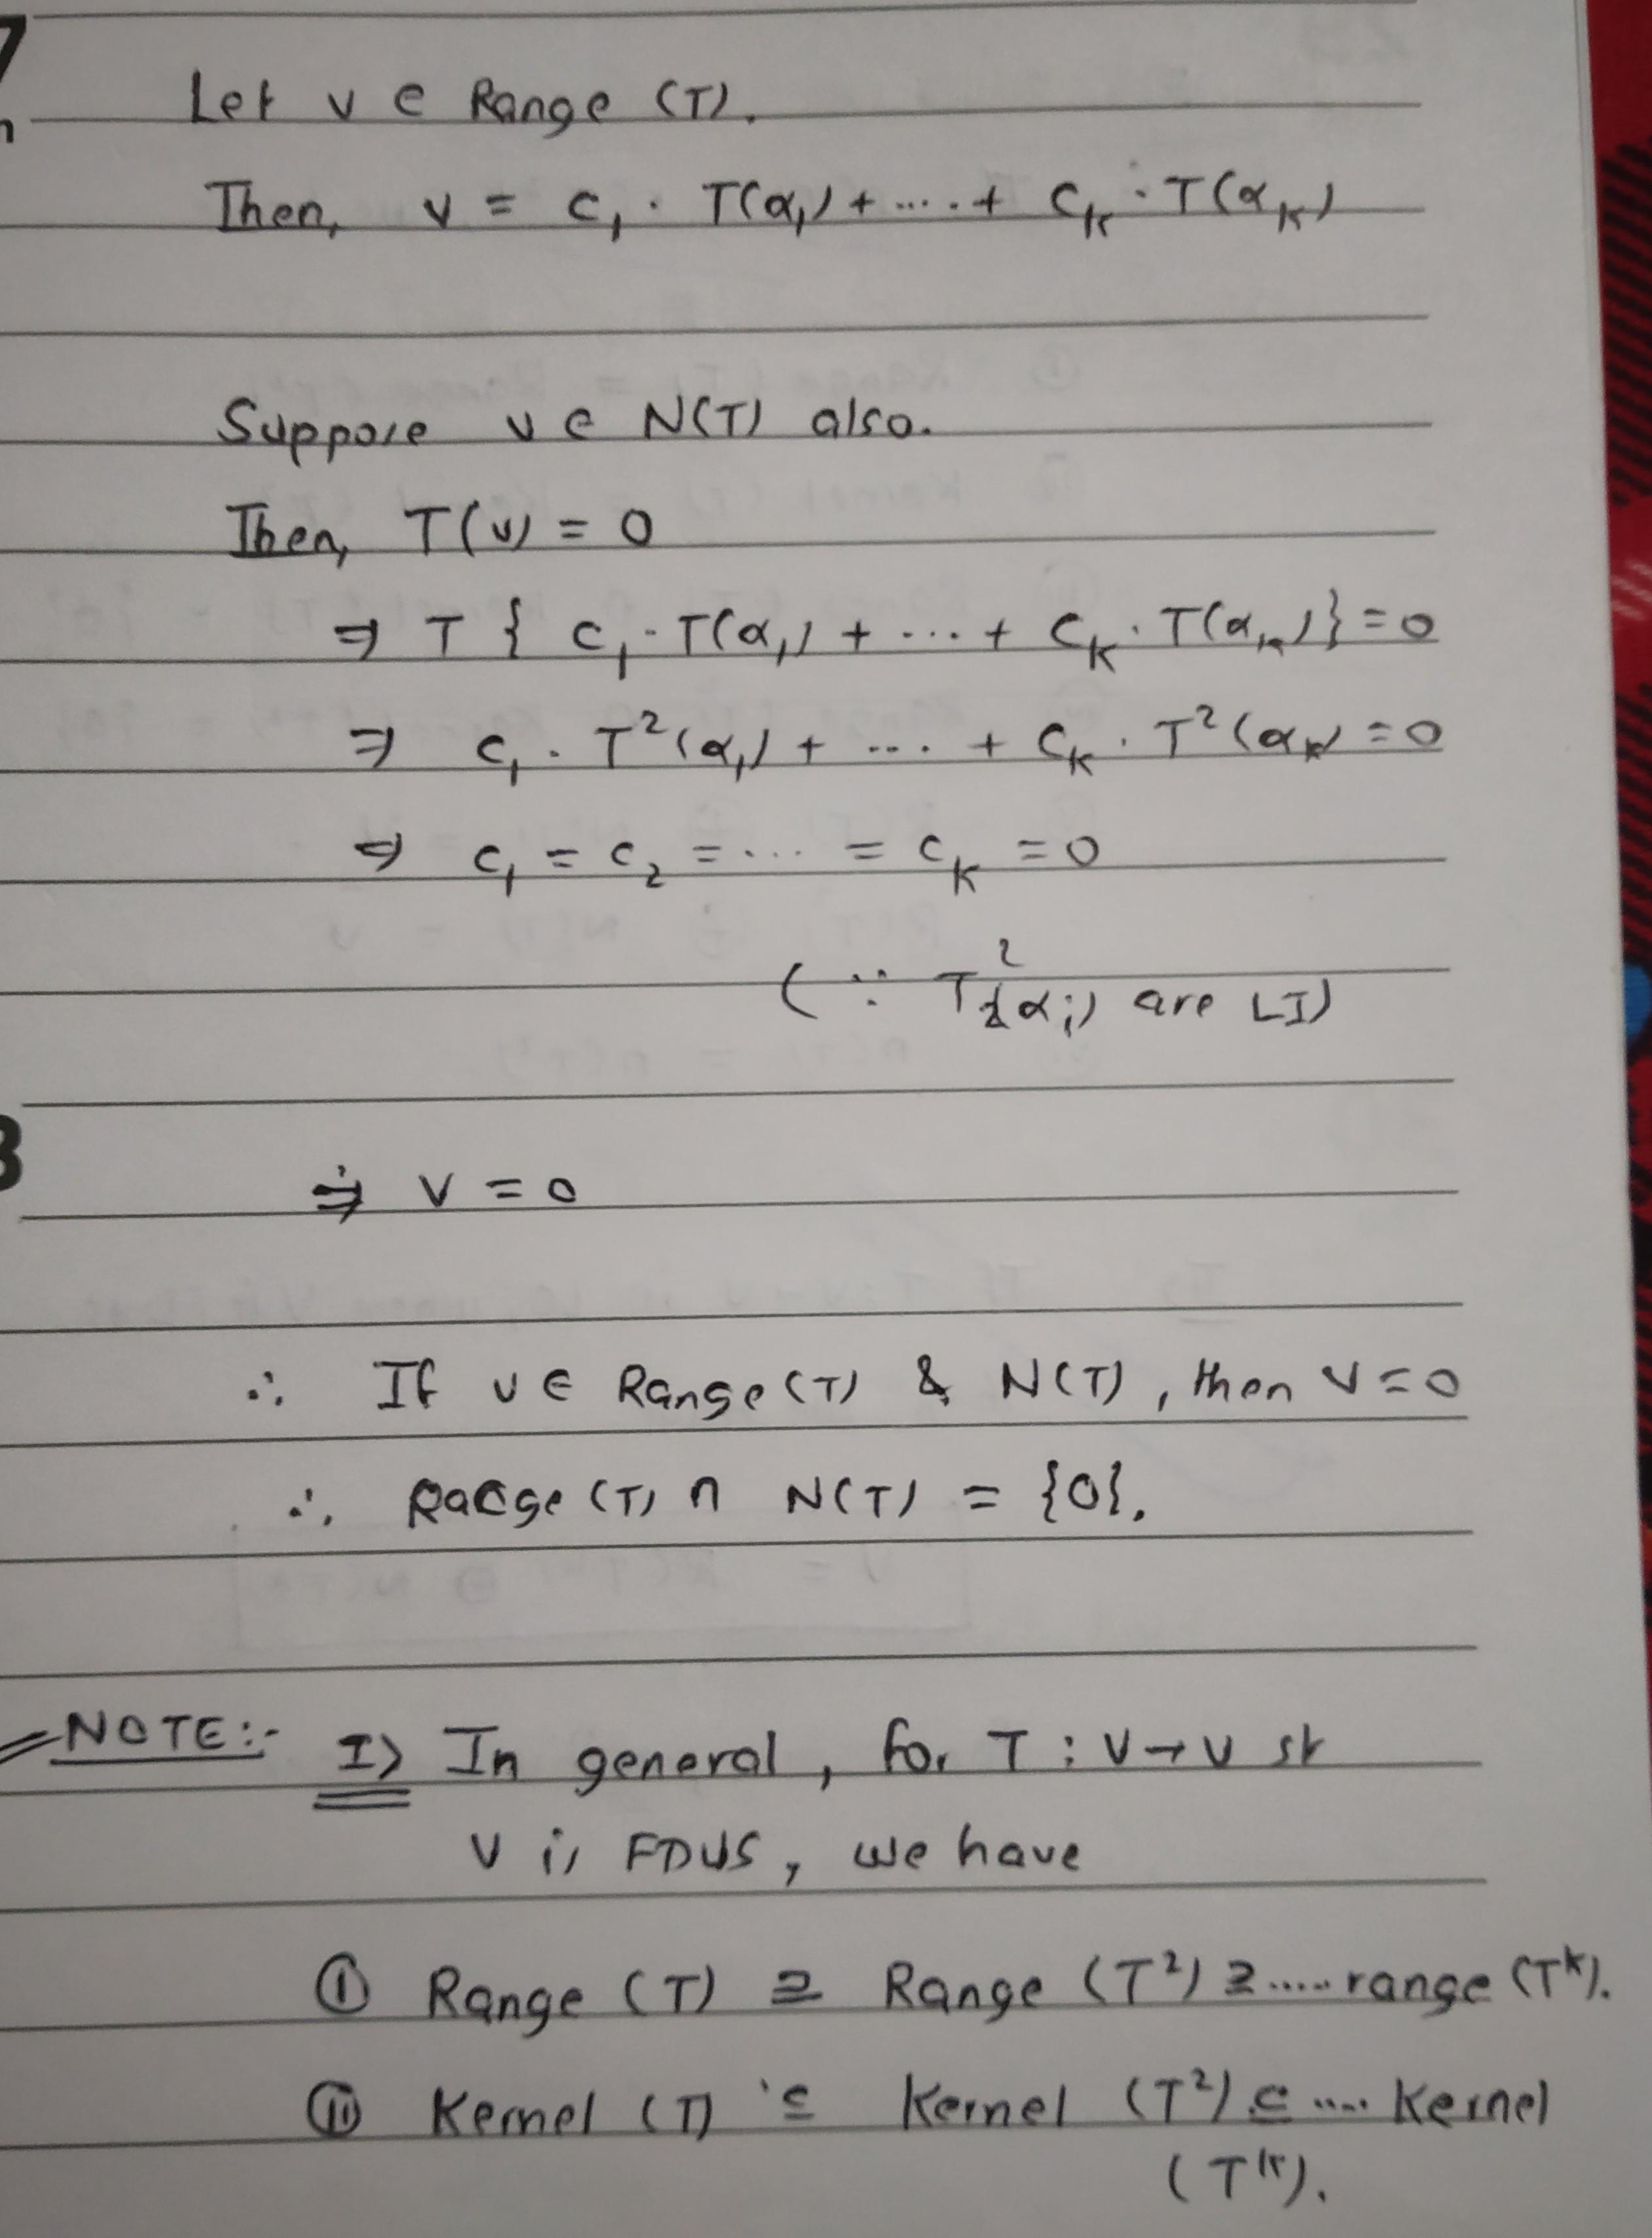 Let v ∈ Range (T).
Then, v = c₁ · T(α₁) + ..... + cₖ · T(αₖ)
Suppose v ∈ N(T) also.
Then, T(v) = 0
⇒ T { c₁ · T(α₁) + ... + cₖ · T(αₖ)} = 0
⇒ c₁ · T²(α₁) + .... + cₖ · T²(αₖ) = 0
⇒ c₁ = c₂ = .... = cₖ = 0
(∵ T²(αᵢ) are LI)
⇒ v = 0
∴ If v ∈ Range (T) & N(T), then v = 0
∴ Racge (T) ∩ N(T) = {0}.
NOTE:- I> In general, for T : V → V st
V is FDVS, we have
① Range (T) ⊇ Range (T²) ⊇ ..... range (Tᵏ).
② Kernel (T) ⊆ Kernel (T²) ⊆ .... Kernel
(Tᵏ).